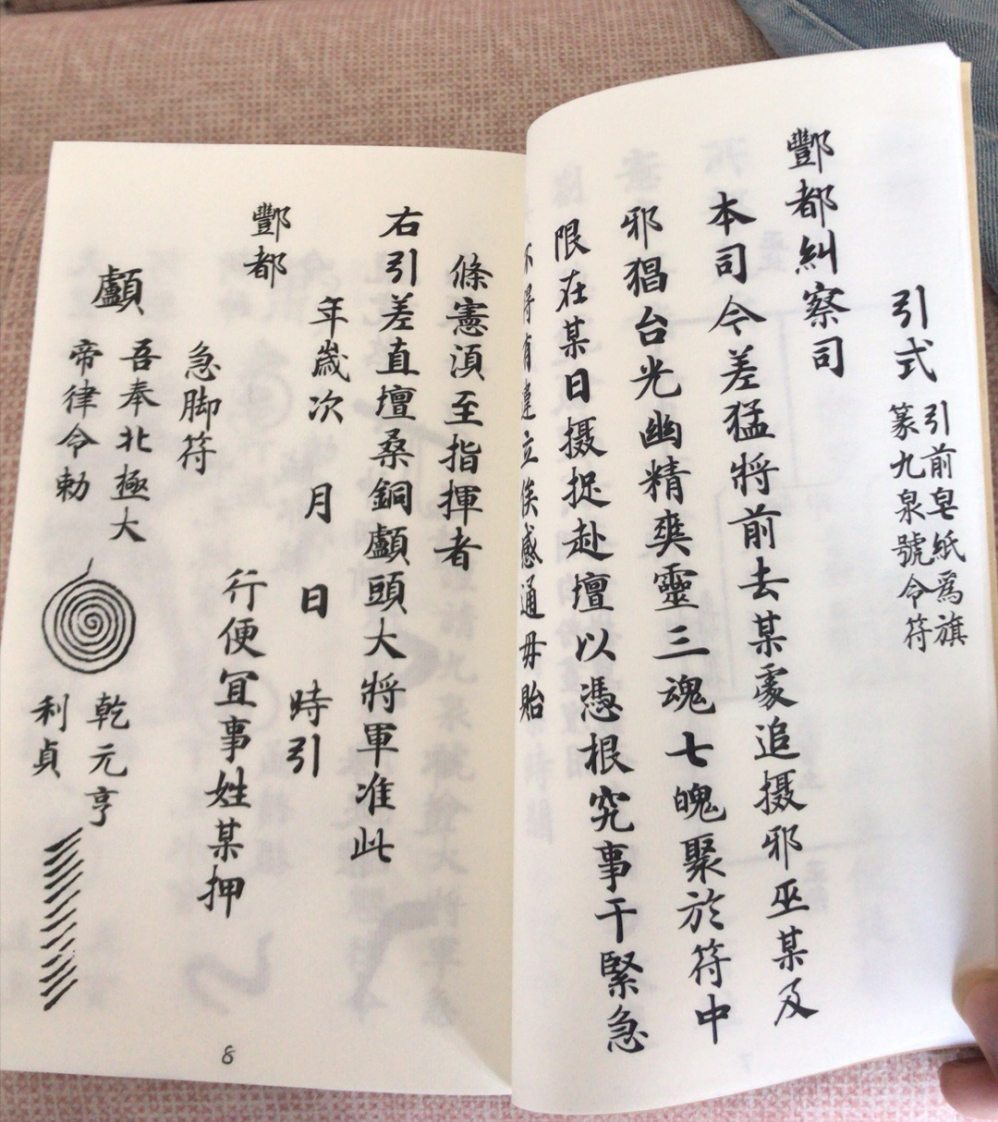 引式
引前皂紙爲旗
篆九泉號令符
酆都糾察司
本司令差猛將前去某處追摄邪巫某及
邪猖台光幽精爽靈三魂七魄聚於符中
限在某日摄捉赴壇以憑根究事干緊急
得有違立俟感通毋貽
條憲湏至指揮者
右引差直壇桑銅顱頭大將軍准此
年歲次 月 日 時引
酆都
行便冝事姓某押
急脚符
顱
吾奉北極大
帝律令勅
乾元亨
利貞
8
7